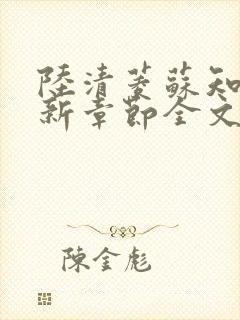 陸清蓁蘇知
新章節全文
陳金彪